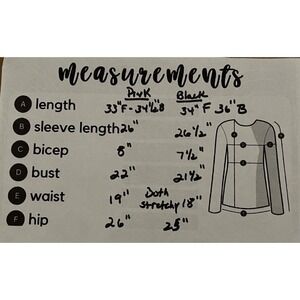 measurements
Pink Black
A length 33"F - 34½"B 34" F 36" B
B sleeve length 26" 26½"
C bicep 8" 7½"
D bust 22" 21½"
E waist 19" Both stretchy 18"
F hip 26" 25"